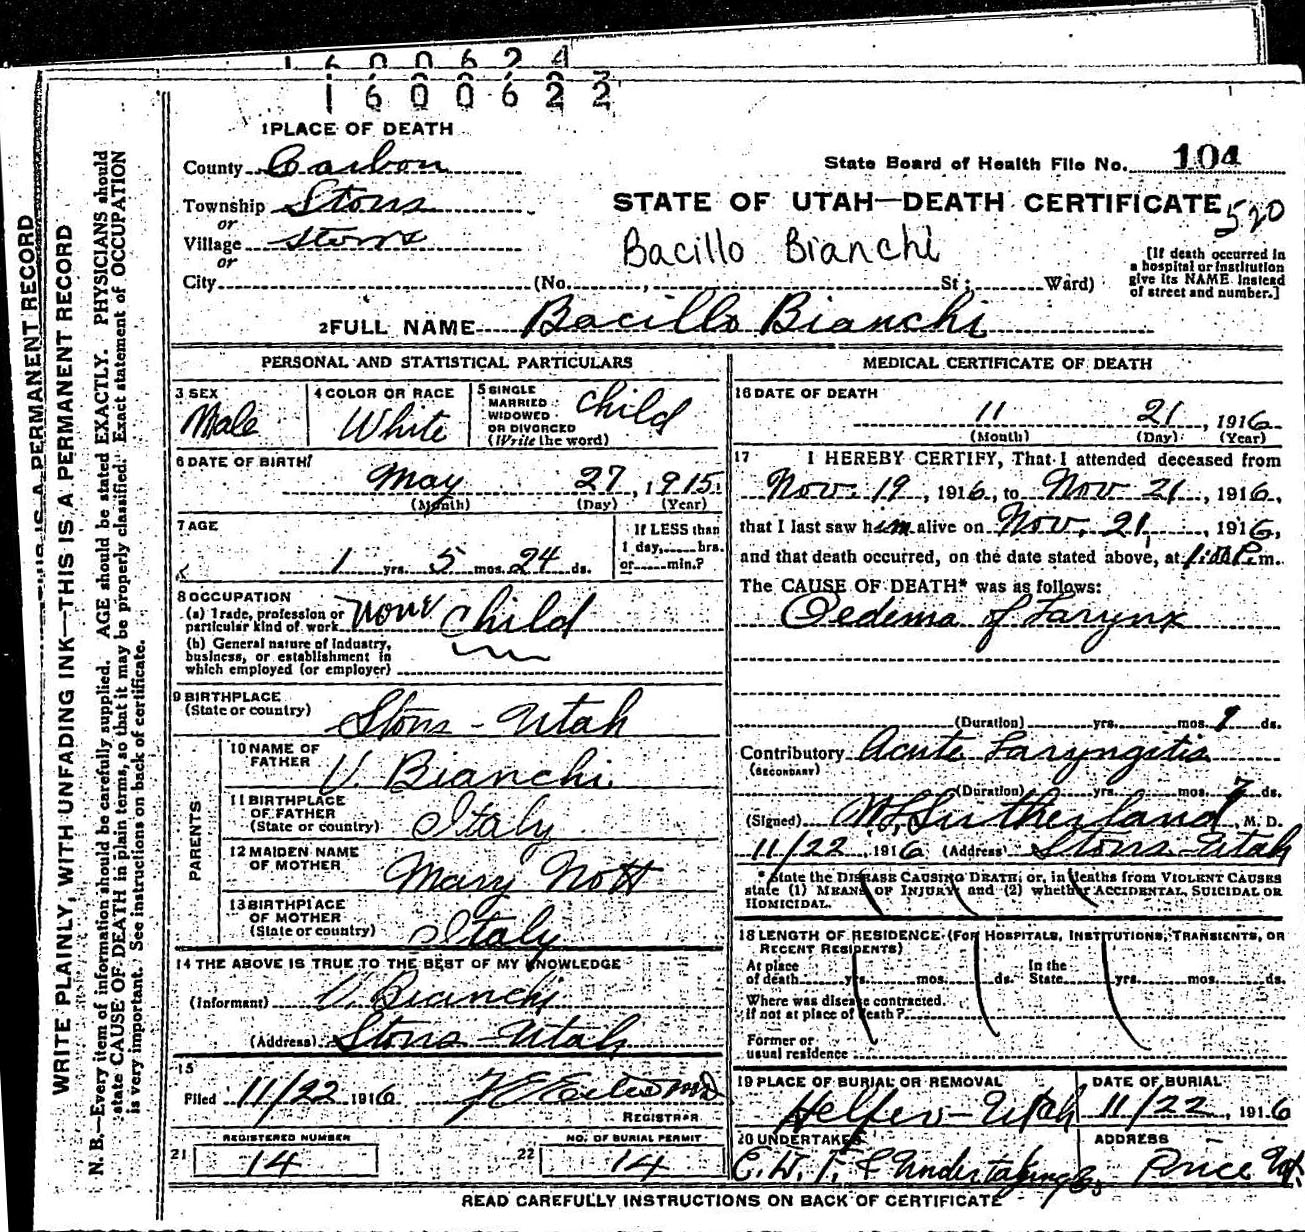 1600624
1600622
1 PLACE OF DEATH
County Carbon
State Board of Health File No. 104
Township Storrs
or
Village Storrs
or
STATE OF UTAH—DEATH CERTIFICATE 520
Bacillo Bianchi
City (No. , St; Ward)
[If death occurred in
a hospital or institution
give its NAME instead
of street and number.]
2 FULL NAME Bacillo Bianchi
PERSONAL AND STATISTICAL PARTICULARS
3 SEX
Male
4 COLOR OR RACE
White
5 SINGLE
MARRIED
WIDOWED
OR DIVORCED
(Write the word)
child
6 DATE OF BIRTH
May 27, 1915
(Month) (Day) (Year)
7 AGE
1 yrs. 5 mos. 24 ds.
If LESS than
1 day, hrs.
or min.?
8 OCCUPATION
(a) Trade, profession or
particular kind of work None child
(b) General nature of industry,
business, or establishment in
which employed (or employer)
9 BIRTHPLACE
(State or country)
Storrs - Utah
PARENTS
10 NAME OF
FATHER
V. Bianchi
11 BIRTHPLACE
OF FATHER
(State or country) Italy
12 MAIDEN NAME
OF MOTHER
Mary Nott
13 BIRTHPLACE
OF MOTHER
(State or country) Italy
14 THE ABOVE IS TRUE TO THE BEST OF MY KNOWLEDGE
(Informant) V. Bianchi
(Address) Storrs - Utah
15
Filed 11/22 1916
REGISTRAR
REGISTERED NUMBER
21 14
NO. OF BURIAL PERMIT
22 14
MEDICAL CERTIFICATE OF DEATH
16 DATE OF DEATH
11 21, 1916
(Month) (Day) (Year)
17 I HEREBY CERTIFY, That I attended deceased from
Nov. 19, 1916, to Nov 21, 1916,
that I last saw him alive on Nov. 21, 1916,
and that death occurred, on the date stated above, at P.m.
The CAUSE OF DEATH* was as follows:
Oedema of Larynx
(Duration) yrs. mos. ds.
Contributory Acute Laryngitis
(SECONDARY)
(Duration) yrs. mos. ds.
(Signed) Sutherland, M. D.
11/22, 1916 (Address) Storrs - Utah
* State the DISEASE CAUSING DEATH, or, in deaths from VIOLENT CAUSES
state (1) MEANS OF INJURY; and (2) whether ACCIDENTAL, SUICIDAL OR
HOMICIDAL.
18 LENGTH OF RESIDENCE (FOR HOSPITALS, INSTITUTIONS, TRANSIENTS, OR
RECENT RESIDENTS)
At place
of death yrs. mos. ds.
In the
State yrs. mos. ds.
Where was disease contracted
if not at place of death?
Former or
usual residence
19 PLACE OF BURIAL OR REMOVAL
Helper - Utah
DATE OF BURIAL
11/22, 1916
20 UNDERTAKER
Undertaking Co.
ADDRESS
Price Ut.
READ CAREFULLY INSTRUCTIONS ON BACK OF CERTIFICATE
IS A PERMANENT RECORD
WRITE PLAINLY, WITH UNFADING INK—THIS IS A PERMANENT RECORD
N. B.—Every item of information should be carefully supplied. AGE should be stated EXACTLY. PHYSICIANS should
state CAUSE OF DEATH in plain terms, so that it may be properly classified. Exact statement of OCCUPATION
is very important. See instructions on back of certificate.